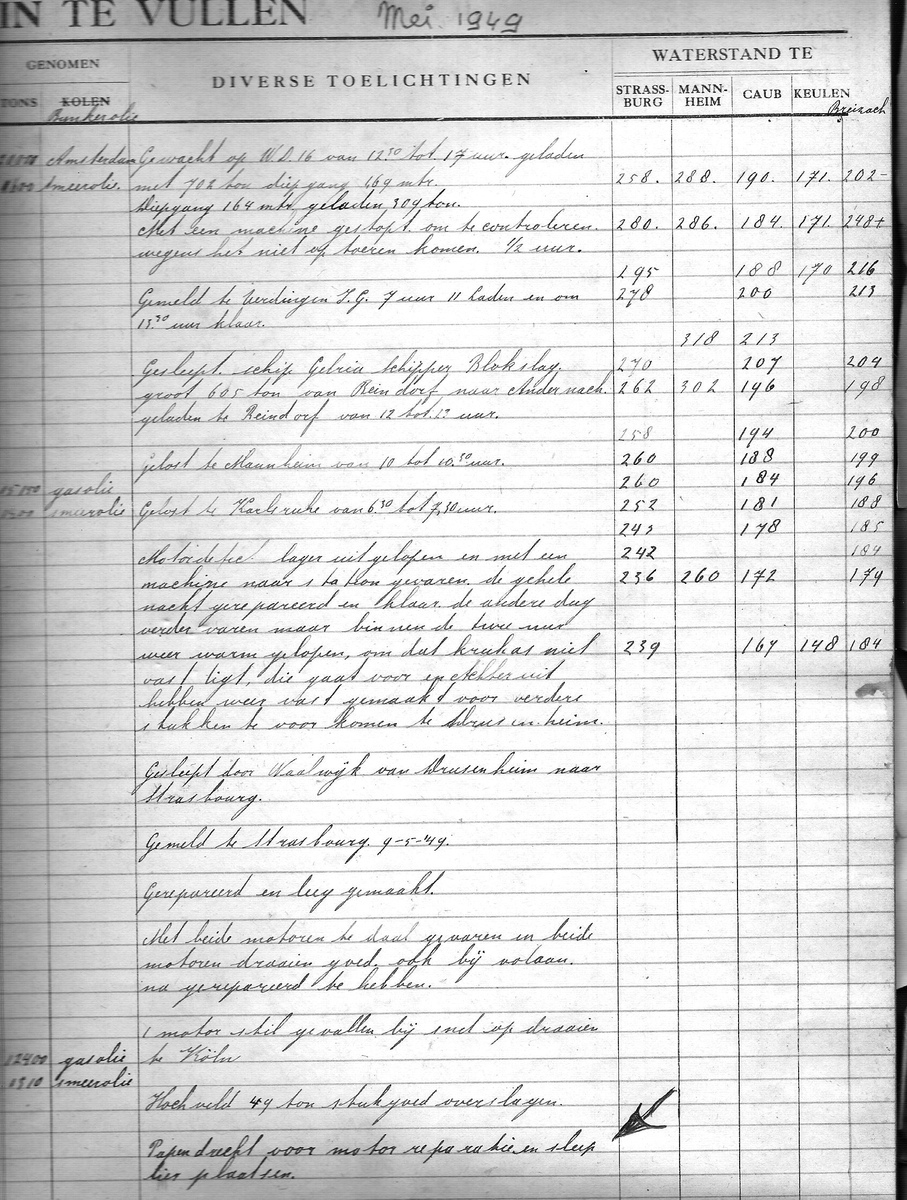 IN TE VULLEN Mei 1949
GENOMEN DIVERSE TOELICHTINGEN WATERSTAND TE
TONS KOLEN STRASS-BURG MANN-HEIM CAUB KEULEN Breisach
Bunkerolie
Amsterdam Gewacht op W.D. 16 van 12 30 tot 17 uur. geladen
smeerolie. met 702 ton diepgang 1,69 mtr. 258. 288. 190. 171. 202-
Diepgang 164 mtr. geladen 309 ton.
Met een machine gestopt om te controleren 280. 286. 184. 171. 248+
wegens het niet op toeren komen. 1/2 uur.
195 188 170 216
Gemeld te Uerdingen I.G. 7 uur 11 laden en om 278 200 213
13 30 uur klaar.
318 213
Gesleept schip Gelria schipper Blokslag. 270 207 204
groot 605 ton van Reindorf naar Andernach. 262 302 196 198
geladen te Reindorf van 12 tot 13 uur.
258 194 200
gelost te Mannheim van 10 tot 10.30 uur. 260 188 199
gasolie 260 184 196
smeerolie Gelost te Karlsruhe van 6 30 tot 7,30 uur. 252 181 188
245 178 185
Motor defect lager uitgelopen en met een 242 184
machine naar station gevaren. de gehele 236 260 172 179
nacht gerepareerd en klaar. de andere dag
verder varen maar binnen de twee uur
weer warm gelopen, om dat krukas niet 239 167 148 184
vast ligt, die gaat voor en achteruit
hebben weer vast gemaakt voor verdere
stukken te voor komen te Drusenheim.
Gesleept door Waalwijk van Drusenheim naar
Strasbourg.
Gemeld te Strasbourg. 9-5-'49.
Gerepareerd en leeg gemaakt.
Met beide motoren te daal gevaren en beide
motoren draaien goed. ook bij volaan.
na gerepareerd te hebben.
1 motor stil gevallen bij snel op draaien
12400 gasolie te Köln
1310 smeerolie
Hochveld 49 ton stukgoed overslagen.
Papendrecht voor motor reparatie en sleep
lier plaatsen.